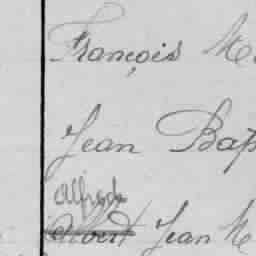 François M
Jean Bap
Alfred
Albert Jean M